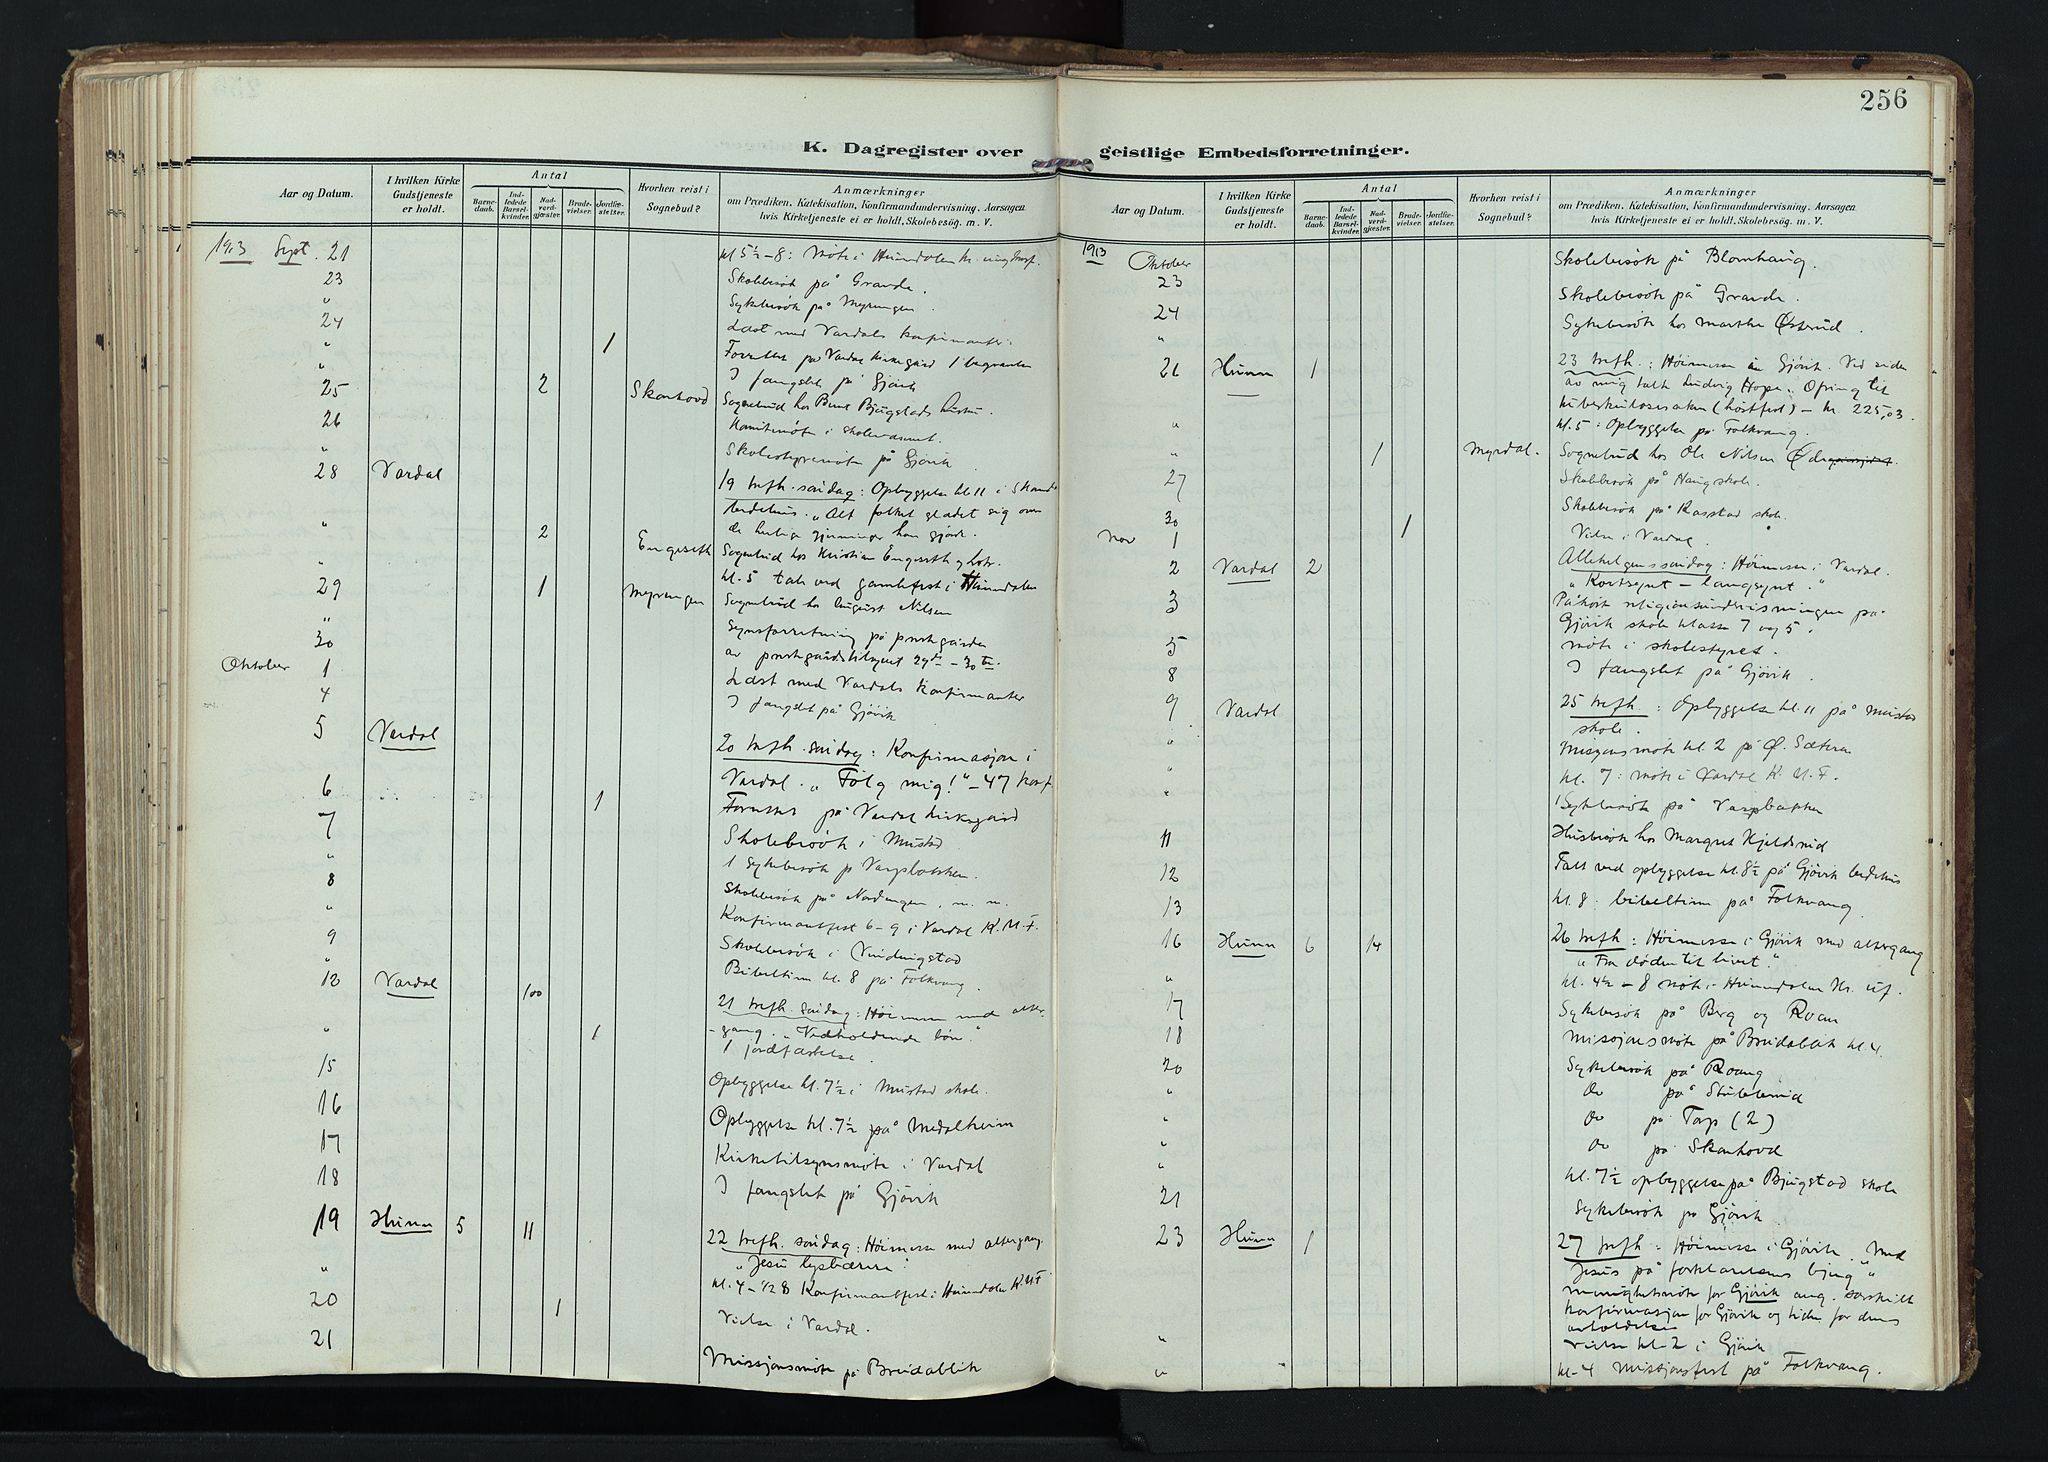 256
K. Dagregister over geistlige Embedsforretninger.
Aar og Datum.
I hvilken Kirke Gudstjeneste er holdt.
Antal
Barnedaab.
Indledede Barselkvinder.
Nadverdgjæster.
Brudevielser.
Jordfæstelser.
Hvorhen reist i Sognebud?
Anmærkninger
om Prædiken, Katekisation, Konfirmandundervisning, Aarsagen
hvis Kirketjeneste ei er holdt, Skolebesög, m. V.
1913 Sept. 21 kl 5½-8: Møte i Hunndalen kr. ungdomsf.
23 Skolebesøk på Grande.
" Sykebesøk på Myrengen
24 Læst med Vardals konfirmanter.
" 1 Forrettet på Vardal kirkegård 1 begravelse
25 I fængslet på Gjøvik
26 2 Skonhovd Sognebud hos Bjugstads hustru.
" Skolestyremøte på Gjøvik
28 Vardal 19 trefh. søndag: Opbyggelse kl. 11 i
bedehus. "Alt folket glædet sig over
de herlige gjerninger han gjorde.
" 2 Engeseth Sognebud hos Kristian Engeseth
" kl. 5 tale ved gamlefest i Hunndalen
29 1 Myrengen Sognebud hos August Nilsen
" Synsforretning på prestegården
30 av prestegårdstilsynet 29de - 30te.
Oktober 1 Læst med Vardals konfirmanter
4 I fængslet på Gjøvik
5 Vardal 20 trefh. søndag: Konfirmasjon i
Vardal. "Følg mig!" - 47 konf.
6 1 på Vardal kirkegård
7 Skolebesøk i Mustad
" 1 Sykebesøk på Varpbakken.
8 Skolebesøk på Nordengen
" Konfirmantfest 6-9 i Vardal K.U.F.
9 Skolebesøk i Vindingstad
" Bibeltime kl. 8 på Folkvang.
12 Vardal 100 21 trefh. søndag: Høimesse med alter-
gang. "Vedholdende bøn".
" 1 1 jordfæstelse.
15 Opbyggelse kl. 7½ i Mustad skole.
16 Opbyggelse kl. 7½ på Medalheim
17 Kirketilsynsmøte i Vardal
18 I fængslet på Gjøvik
19 Hunn 5 11 22 trefh. søndag: Høimesse med altergang.
"Jesu lysbærere".
" kl. 4-½8 Konfirmantfest i Hunndalen K.U.F.
20 1 Vielse i Vardal.
21 Missjonsmøte på Breidablik
Aar og Datum.
I hvilken Kirke Gudstjeneste er holdt.
Antal
Barnedaab.
Indledede Barselkvinder.
Nadverdgjæster.
Brudevielser.
Jordfæstelser.
Hvorhen reist i Sognebud?
Anmærkninger
om Prædiken, Katekisation, Konfirmandundervisning, Aarsagen
hvis Kirketjeneste ei er holdt, Skolebesög, m. V.
1913 Oktober Skolebesøk på Blomhaug.
23 Skolebesøk på Grande.
24 Sykebesøk hos Marthe Østerud.
"
26 Hunn 1 23 trefh.: Høimesse i Gjøvik. Ved siden
av mig talte Ludvig Hope. Ofring til
tuberkulosesaken (høstfest) - kr. 225,03.
" kl. 5: Opbyggelse på Folkvang.
" 1 Myrdal. Sognebud hos Ole Nilsen
27 Skolebesøk på Haug skole.
30 Skolebesøk på Rasstad skole.
Nov 1 1 Vielse i Vardal.
2 Vardal 2 Allehelgenssøndag: Høimesse i Vardal.
"Kortsynt - langsynt."
3 Påhørt religionsundervisningen på
Gjøvik skole klasse 7 og 5.
5 Møte i skolestyret.
8 I fængslet på Gjøvik.
9 Vardal 25 trefh.: Opbyggelse kl. 11 på Mustad
skole.
" Missjonsmøte kl. 2 på Ø. Sætra
" kl. 7: møte i Vardal K.U.F.
" 1 Sykebesøk på Varpbakken
11 Husbesøk hos Margret Kjeldsrud
12 Talt ved opbyggelse kl. 8½ på Gjøvik bedehus
13 kl. 8. bibeltime på Folkvang.
16 Hunn 6 14 26 trefh: Høimesse i Gjøvik med altergang
"Fra døden til livet."
" kl. 4½ - 8 møte i Hunndalen kr. uf.
17 Sykebesøk på Berg og Roan
18 Missjonsmøte på Breidablik kl. 4.
20 Sykebesøk på Roang
" do på Stubberud
" do på Tarp (2)
" do på Skonhovd
" kl. 7½ opbyggelse på Bjugstad skole
21 Sykebesøk på Gjøvik
23 Hunn 1 27 trefh: Høimesse i Gjøvik. "Med
Jesus på forklarelsens bjerg"
menighetsmøte for Gjøvik ang. særskilt
konfirmasjon for Gjøvik og tiden for dens
avholdelse
" Vielse kl. 2 i Gjøvik
" kl. 4 missjonsfest på Folkvang.